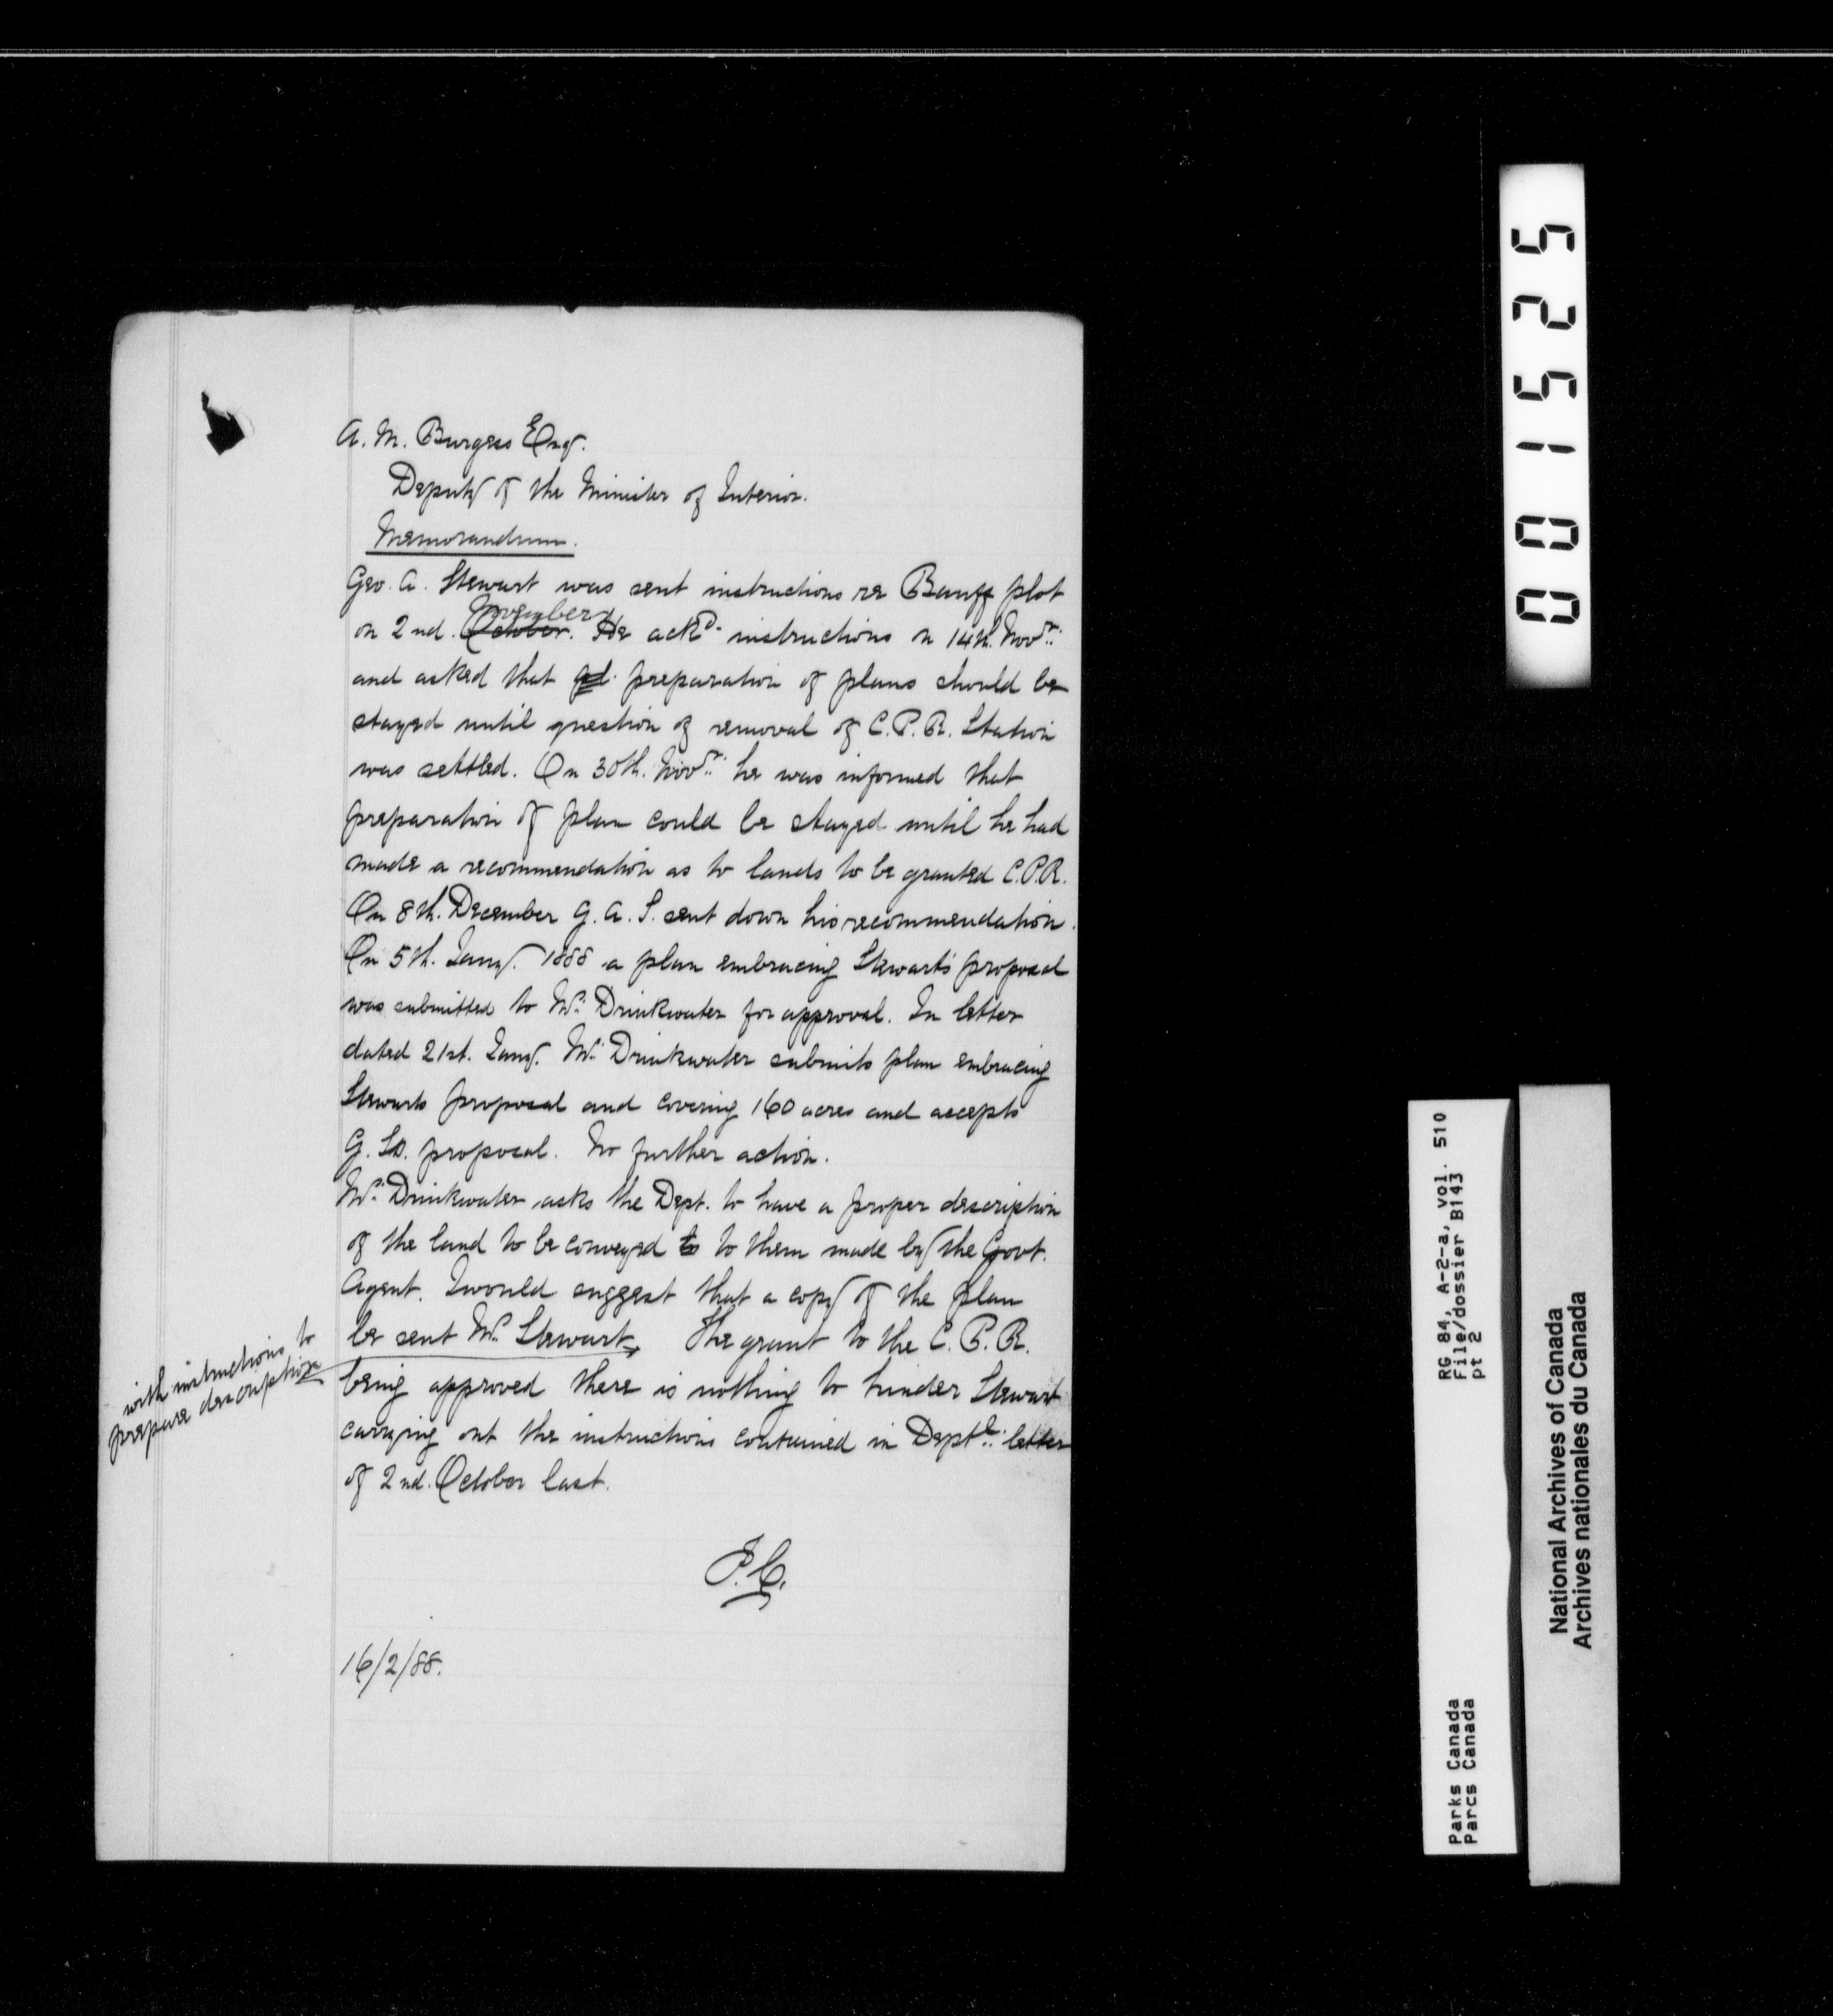 A. M. Burgess Esq.
Deputy of the Minister of Interior.
Memorandum.
Geo. A. Stewart was sent instructions re Banff plot
on 2nd. October. November He ackd. instructions on 14th. Novr.
and asked that preparation of plans should be
stayed until question of removal of C.P.R. Station
was settled. On 30th. Novr. he was informed that
preparation of plan could be stayed until he had
made a recommendation as to lands to be granted C.P.R.
On 8th. December G. A. S. sent down his recommendation.
On 5th. Jany. 1888 a plan embracing Stewart's proposal
was submitted to Mr. Drinkwater for approval. In letter
dated 21st. Jany. Mr. Drinkwater submits plan embracing
Stewarts proposal and covering 160 acres and accepts
G. proposal. No further action.
Mr. Drinkwater asks the Dept. to have a proper description
of the land to be conveyed to to them made by the Govt.
Agent. I would suggest that a copy of the plan
be sent Mr. Stewart, The grant to the C.P.R.
with instructions to
prepare description
being approved there is nothing to hinder Stewart
carrying out the instructions contained in Deptl. letter
of 2nd. October last.
P.C.
16/2/88.
001525
RG 84, A-2-a, vol. 510
File/dossier B143
pt 2
Parks Canada
Parcs Canada
National Archives of Canada
Archives nationales du Canada